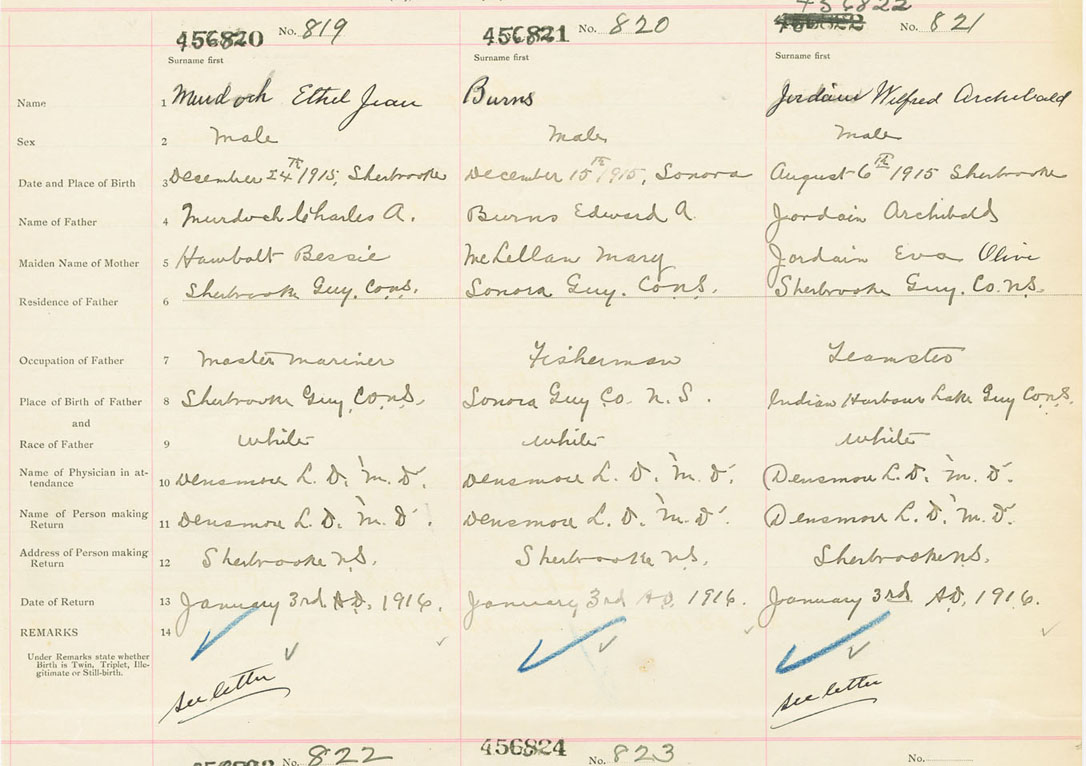 456820 No. 819 456821 No. 820 456822 No. 821
Surname first Surname first Surname first
Name 1 Murdoch Ethel Jean Burns Jordain Wilfred Archibald
Sex 2 Male Male Male
Date and Place of Birth 3 December 24th 1915, Sherbrooke December 15th 1915, Sonora August 6th 1915 Sherbrooke
Name of Father 4 Murdoch Charles A. Burns Edward A. Jordain Archibald
Maiden Name of Mother 5 Hawbolt Bessie McLellan Mary Jordain Eva Olive
Residence of Father 6 Sherbrooke Guy. Co N.S. Sonora Guy. Co N.S. Sherbrooke Guy. Co. N.S.
Occupation of Father 7 Master Mariner Fisherman Teamster
Place of Birth of Father 8 Sherbrooke Guy. Co N.S. Sonora Guy Co. N. S. Indian Harbour Lake Guy Co N.S.
and
Race of Father 9 White White White
Name of Physician in at-
tendance 10 Densmore L. D. M. D. Densmore L. D. M. D. Densmore L. D. M. D.
Name of Person making
Return 11 Densmore L. D. M. D. Densmore L. D. M. D. Densmore L. D. M. D.
Address of Person making
Return 12 Sherbrooke N.S. Sherbrooke N.S. Sherbrooke N.S.
Date of Return 13 January 3rd A.D. 1916. January 3rd A.D. 1916. January 3rd A.D. 1916.
REMARKS 14
Under Remarks state whether
Birth is Twin, Triplet, Ille-
gitimate or Still-birth.
see letter see letter
No. 822 456824 No. 823 No.